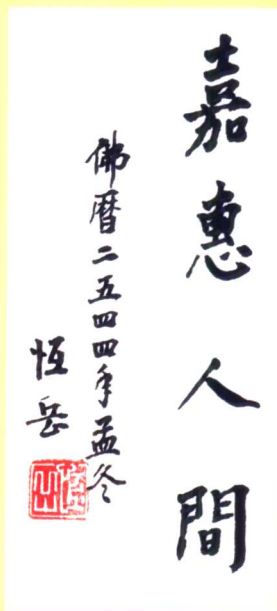 嘉惠人間
佛曆二五四四年孟冬
恆岳